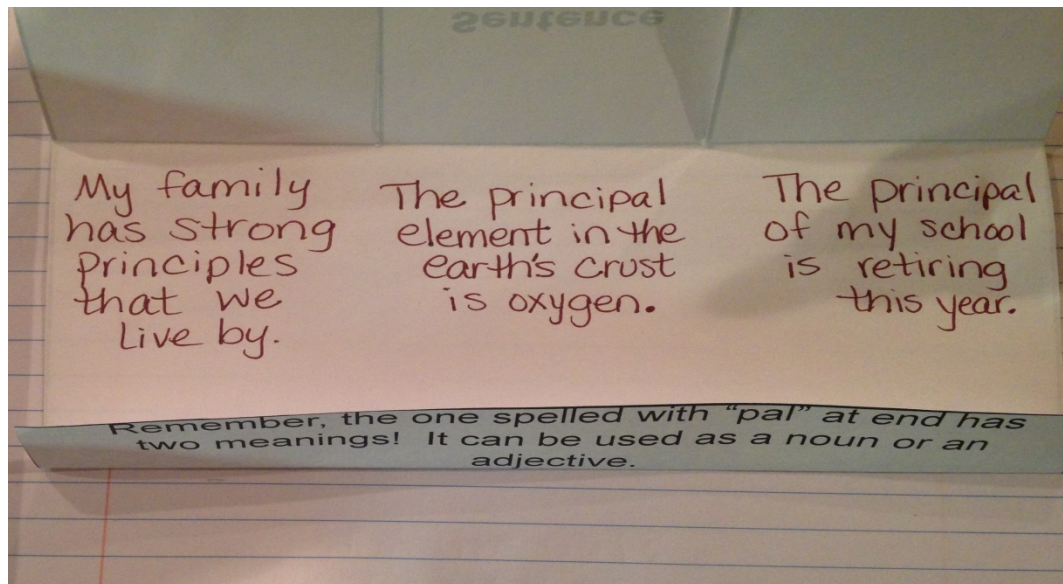 Sentence
My family
has strong
principles
that we
live by.
The principal
element in the
earth's crust
is oxygen.
The principal
of my school
is retiring
this year.
Remember, the one spelled with “pal” at end has
two meanings! It can be used as a noun or an
adjective.